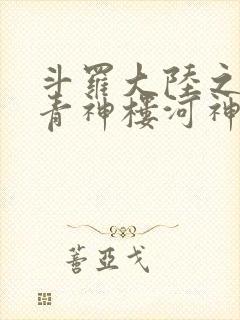 斗羅大陸之
青神樓河神
蓍亞戈